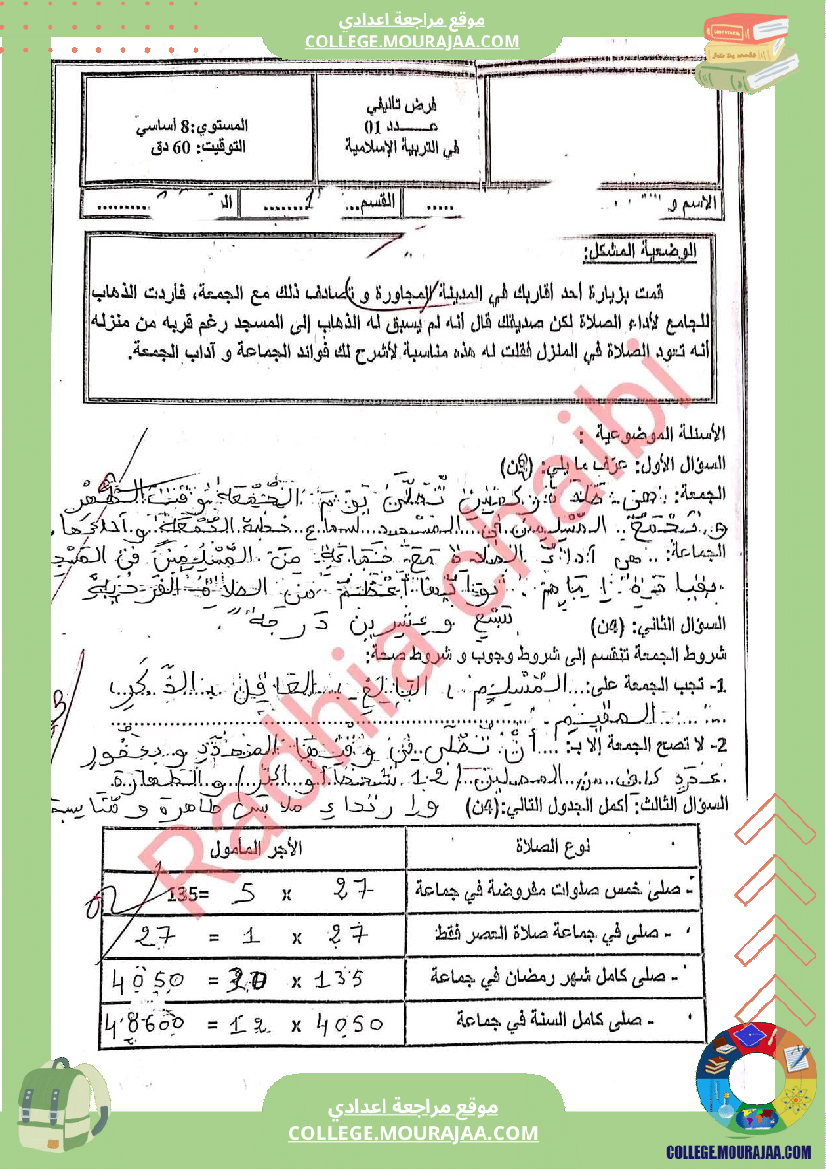 موقع مراجعة اعدادي
COLLEGE.MOURAJAA.COM
فرض تأليفي
عـــدد 01
في التربية الإسلامية
المستوى: 8 أساسي
التوقيت: 60 دق
الاسم و
القسم...1........
الوضعية المشكل:
قمت بزيارة أحد أقاربك في المدينة المجاورة و تصادف ذلك مع الجمعة، فأردت الذهاب
للجامع لأداء الصلاة لكن صديقك قال أنه لم يسبق له الذهاب إلى المسجد رغم قربه من منزله
أنه تعود الصلاة في المنزل فقلت له هذه مناسبة لأشرح لك فوائد الجماعة و آداب الجمعة.
الأسئلة الموضوعية :
السؤال الأول: عرف ما يلي: (2ن)
الجمعة: هي صلاة من ركعتين تُصلَّى يوم الجمعة بوقت الظهر
و تجمع المسلمين في المسجد لسماع خطبة الجمعة و أداءها.
الجماعة: هي أداء الصلاة مع جماعة من المسلمين في المسجد
ثوابها أعظم من الصلاة الفردية
بسبع وعشرين درجة.
السؤال الثاني: (4ن)
شروط الجمعة تنقسم إلى شروط وجوب و شروط صحة:
1- تجب الجمعة على:...المُسلم، البالغ، العاقل، الذَّكر
المقيم
2- لا تصح الجمعة إلا بـ: ...أن تُصلَّى في وقتها المحدد و بحضور
عدد كاف من المصلين (12 شخصا أو أكثر) و الطهارة
و ارتداء ملابس طاهرة و
السؤال الثالث: أكمل الجدول التالي:(4ن)
نوع الصلاة الأجر المأمول
- صلى خمس صلوات مفروضة في جماعة 27 x 5 =135
- صلى في جماعة صلاة العصر فقط 27 x 1 = 27
- صلى كامل شهر رمضان في جماعة 135 x 30 = 4050
- صلى كامل السنة في جماعة 4050 x 12 = 48600
Radhia chaibi
موقع مراجعة اعدادي
COLLEGE.MOURAJAA.COM
COLLEGE.MOURAJAA.COM